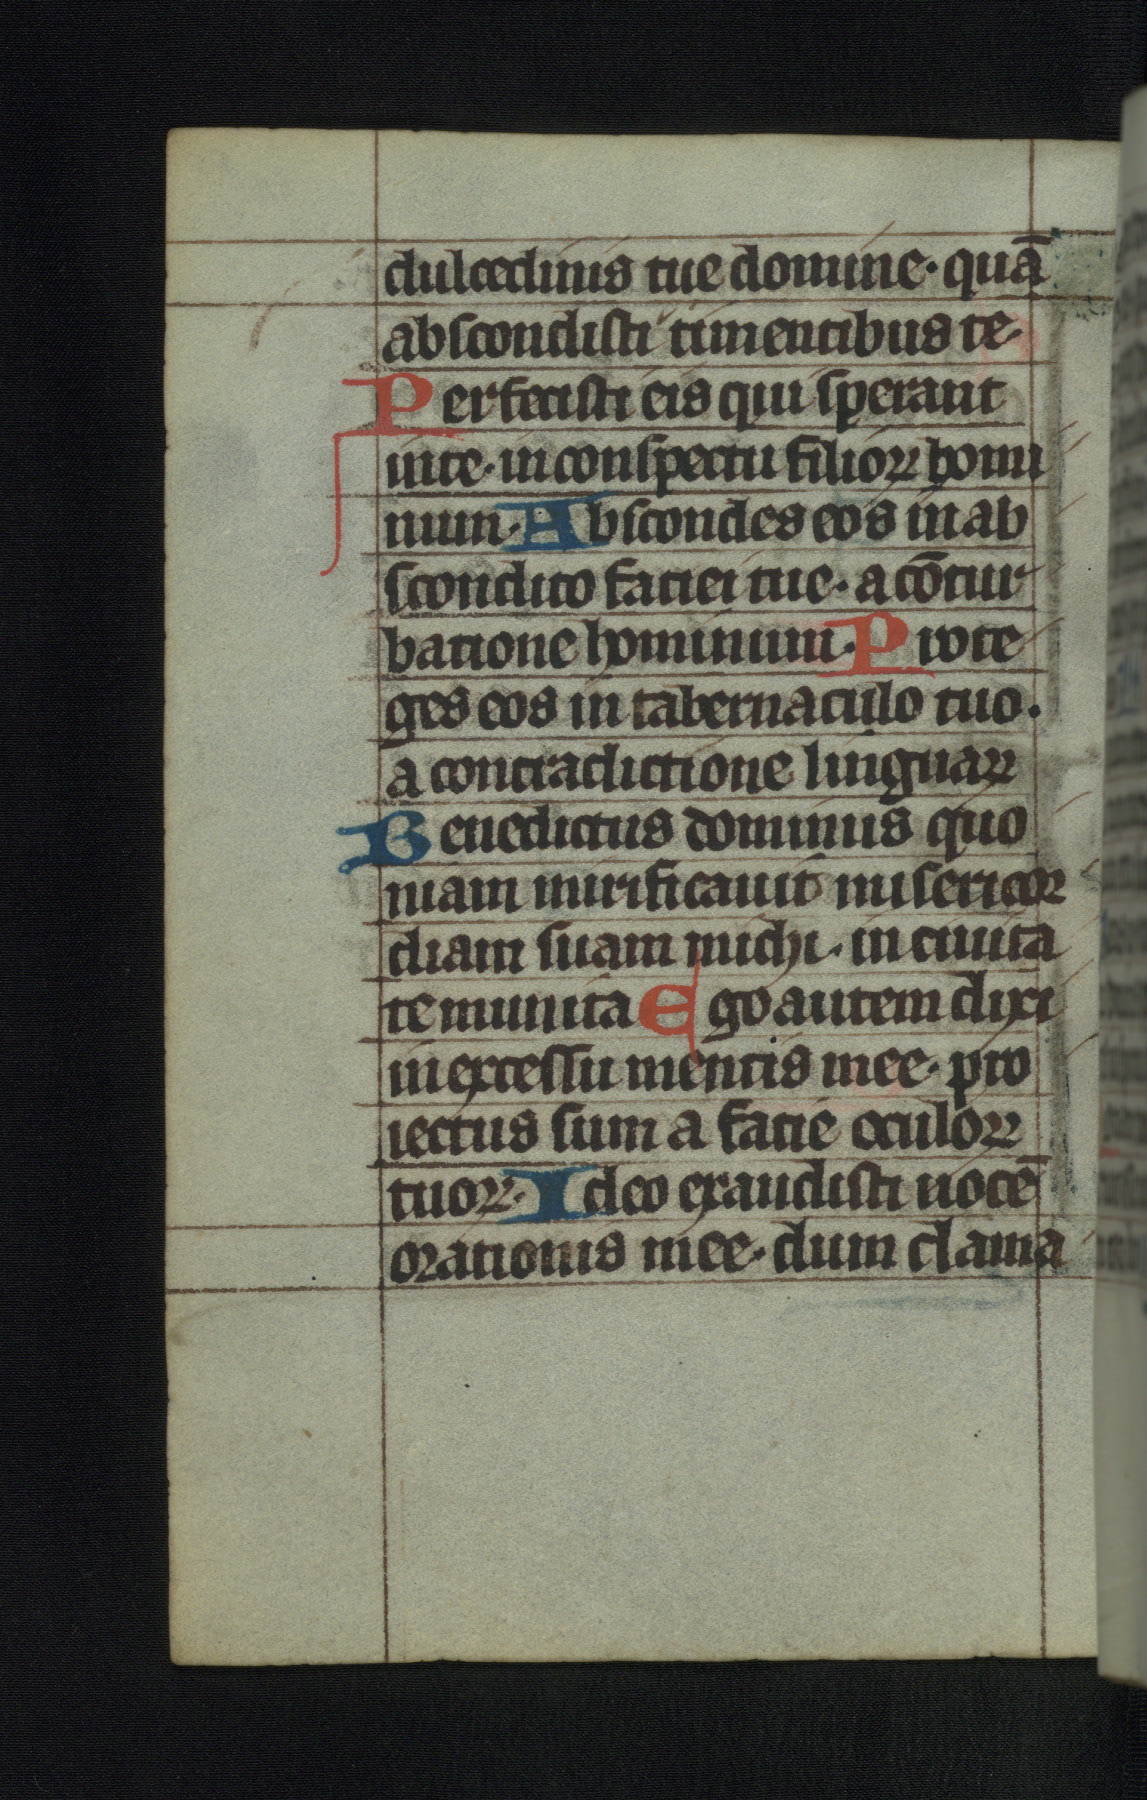 dulcedinis tue domine· quā
abscondisti timentibus te·
Perfecisti eis qui sperant
inte· in conspectu filioꝝ homi
num· Abscondes eos in ab
scondito faciei tue· a cōtur
batione hominum· Prote
ges eos in tabernaculo tuo·
a contradictione linguaꝝ
Benedictus dominus quo
niam mirificauit misericor
diam suam michi· in ciuita
te munita Ego autem dixi
in excessu mentis mee· pro
iectus sum a facie oculoꝝ
tuoꝝ· Ideo exaudisti uocē
orationis mee· dum clama